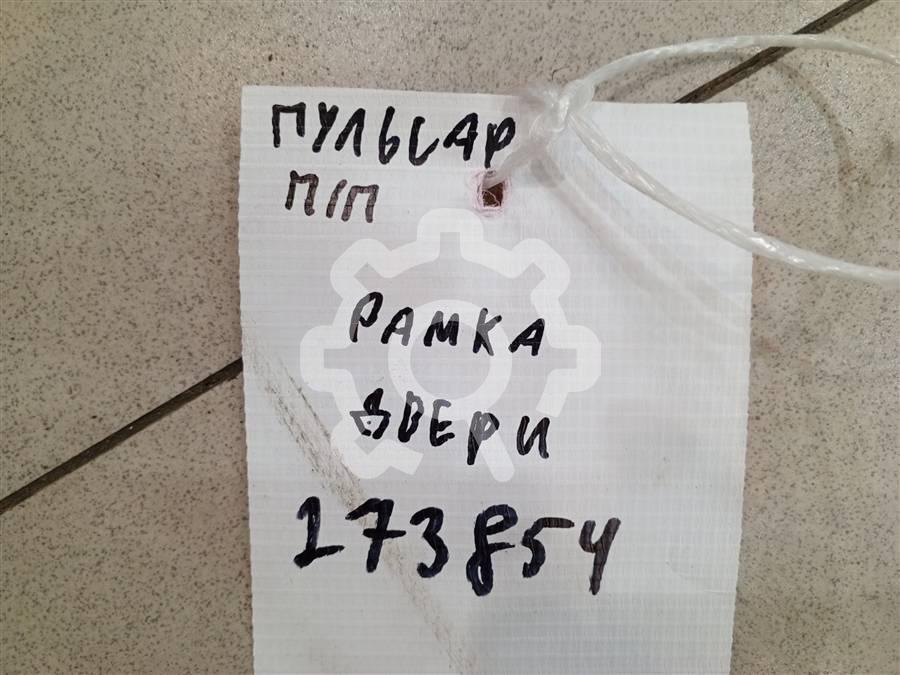 ПУЛЬСАР
П/П
РАМКА
ДВЕРИ
173854